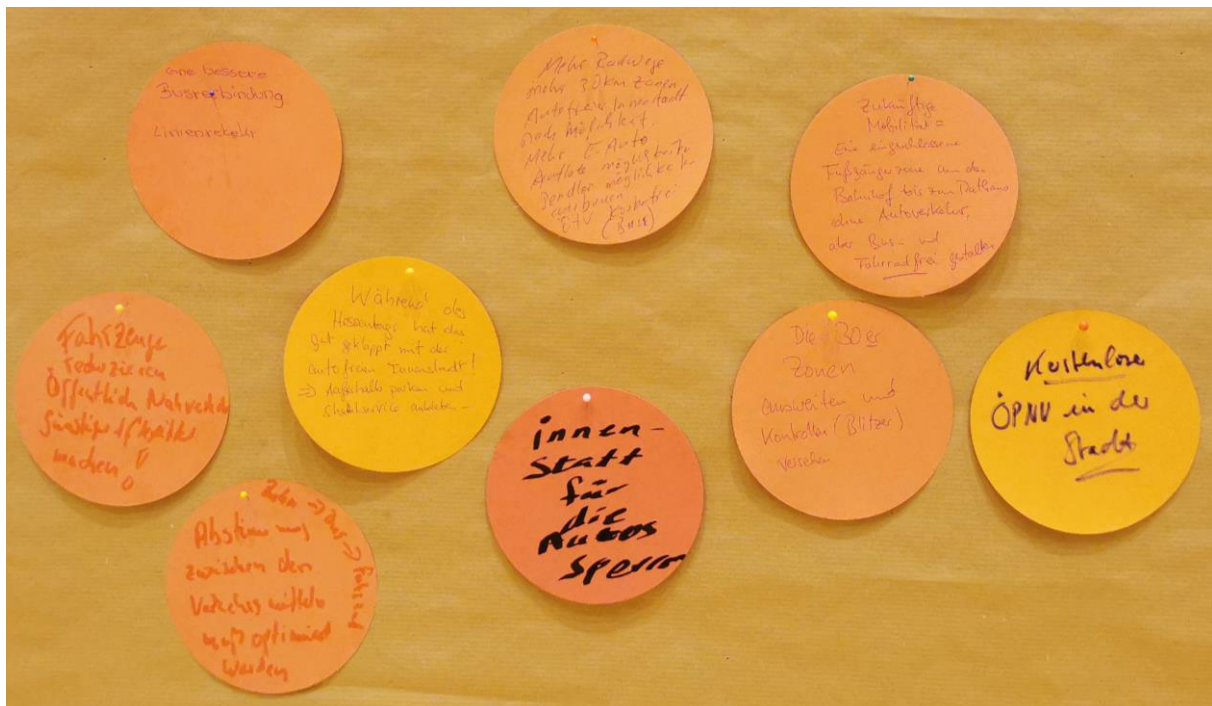 eine bessere
Busverbindung
Linienverkehr
Mehr Radwege
mehr 30km Zonen
Autofreie Innenstadt
nach Möglichkeit.
Mehr E-Auto
Pendler möglichkeit
ausbauen
ÖPV kostenfrei
(Bus)
Zukünftige
Mobilität =
Eine eingeschlossene
Fußgängerzone um den
Bahnhof bis zum Rathaus
ohne Autoverkehr,
aber Bus- und
Fahrradfrei gestalten
Fahrzeuge
reduzieren
Öffentlich Nahverkehr
günstiger
machen!
Während des
Hessentags hat das
gut geklappt mit der
autofreien Innenstadt!
=> Außerhalb parken und
Shuttleservice anbieten -
innen-
statt
für
die
Autos
sperren
Die 30er
Zonen
ausweiten und
Kontrollen (Blitzer)
versehen
Kostenloser
ÖPNV in der
Stadt
Bahn -> Bus -> Fahrrad
Abstimmung
zwischen den
Verkehrsmitteln
muß optimiert
werden